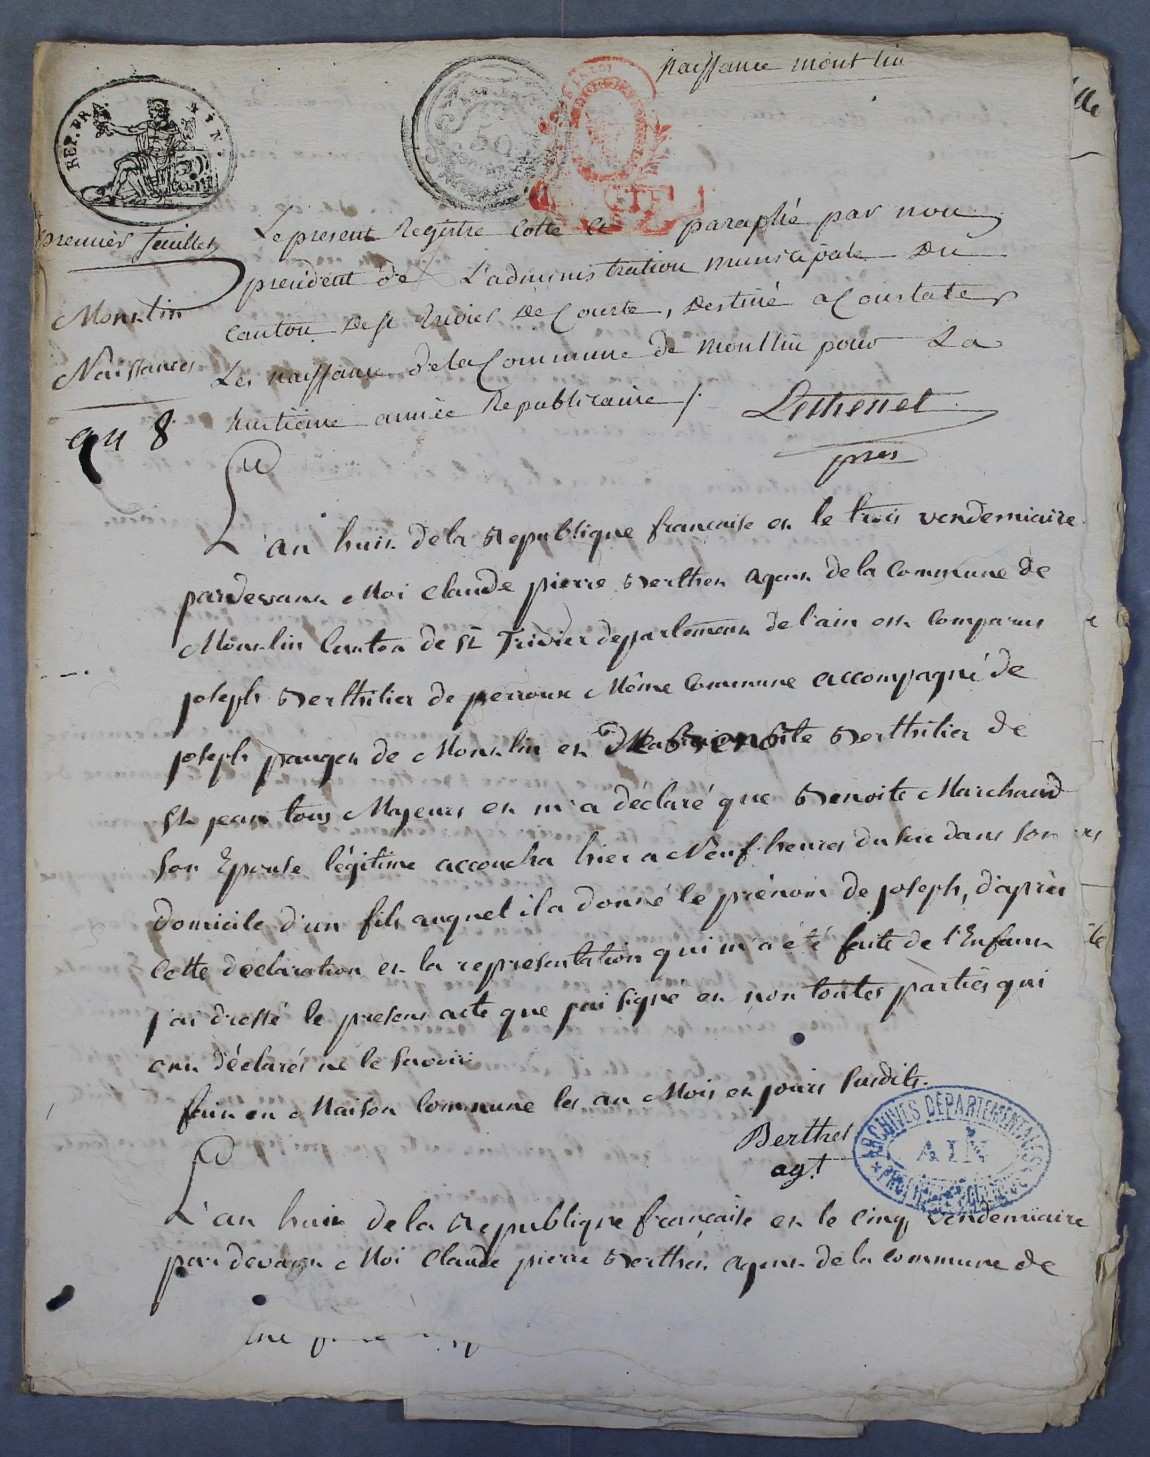 naissance montlin
REP. FRA.
50
premier feuillet
Le present Registre cotté et paraphé par nou
president de L'administration municipale du
Montlin
canton de St Trivier de Courte, destiné a Constater
Naissances
Les naissance de la Commune de montlin pour La
an 8
huitieme année Republicaine /.
pres
L'an huit de la Republique francaise et le trois vendemiaire
pardevant Moi Claude pierre Berthet agent de la commune de
Montlin Canton de St Trivier departement de l'ain est comparus
joseph Berthilier de perroux Même Commune accompagné de
joseph pauget de Montlin et Benoite Berthilier de
St jean tous Majeurs et m'a déclaré que Benoite Marchand
son Epouse légitime accoucha hier a Neuf heures du soir dans son
domicile d'un fils auquel il a donné le prénom de joseph, d'après
cette déclaration et la representation qui m'a été faite de l'Enfant
j'ai dressé le present acte que j'ai signé et non toutes parties qui
ont déclarés ne le savoir
fait en Maison Commune les an Mois et jours susdits.
Berthet
agt
ARCHIVES DÉPARTEMENTALES
AIN
L'an huit de la Republique francaise et le cinq vendemiaire
par devant Moi Claude pierre Berthet agent de la commune de